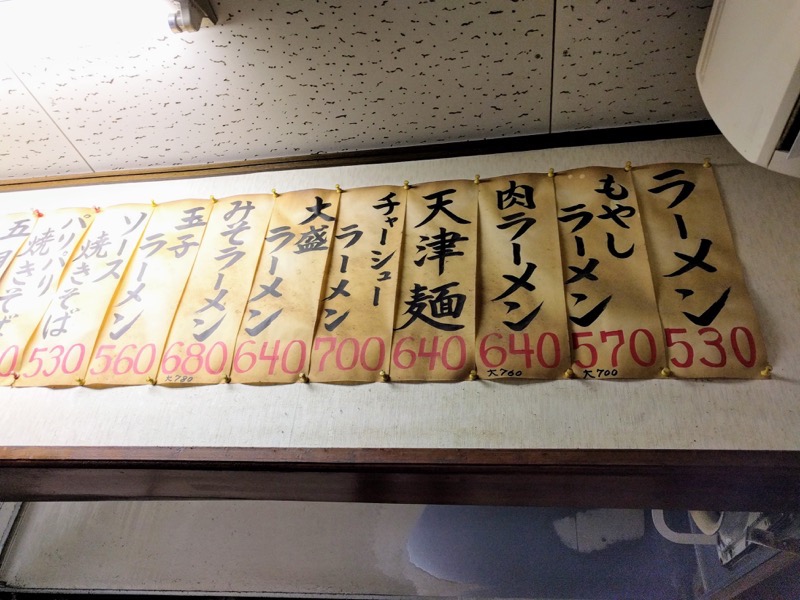 ラーメン
530
もやし
ラーメン
570
大700
肉ラーメン
640
大760
天津麺
640
チャーシュー
ラーメン
700
大盛
ラーメン
640
みそラーメン
680
大780
玉子
ラーメン
560
ソース
焼きそば
530
パリパリ
焼きそば
0
五目